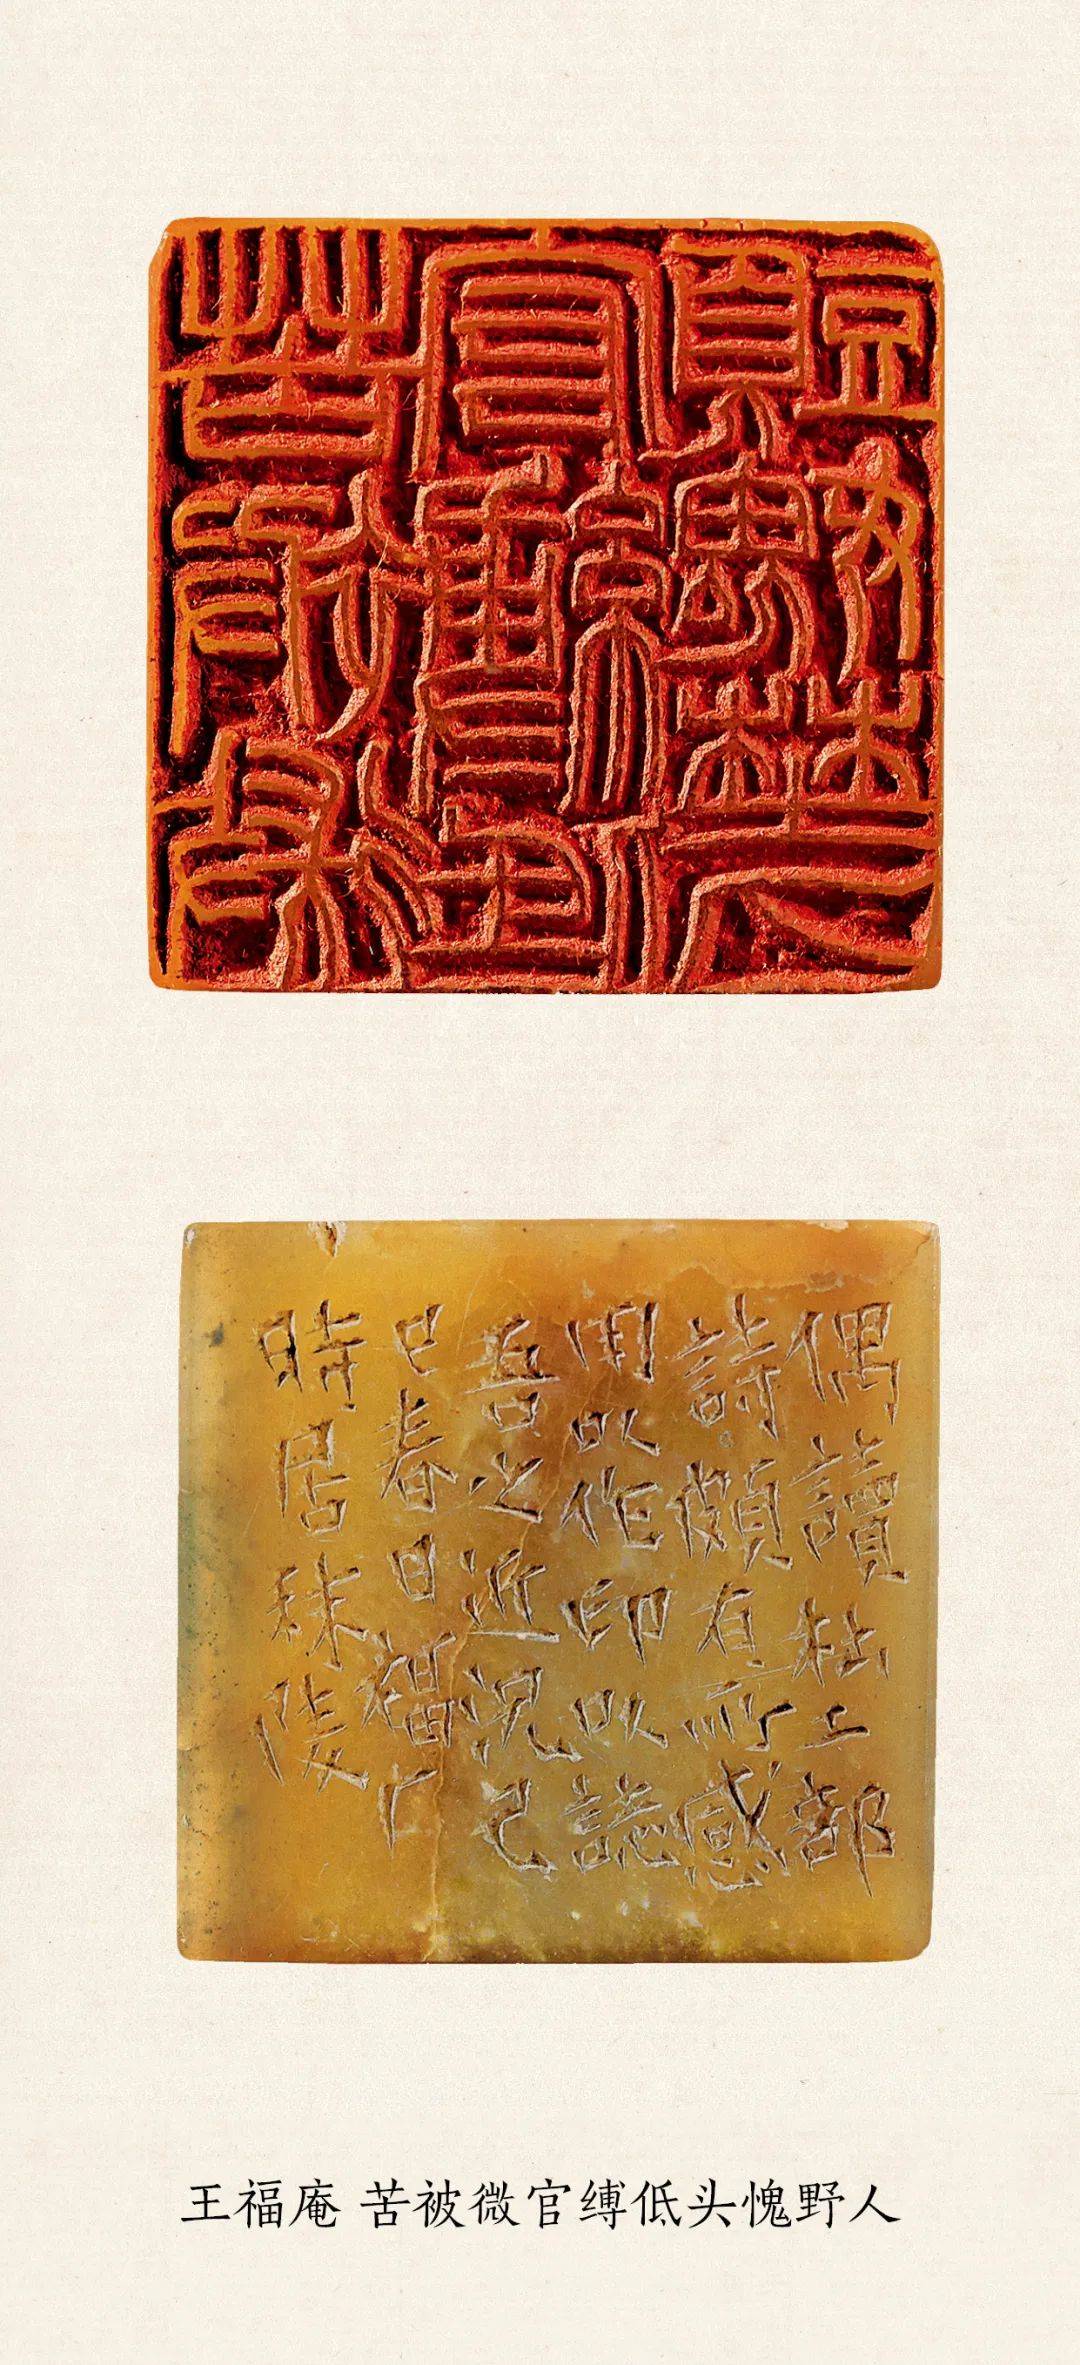 苦被微
官縛低
頭媿埜人
偶讀杜工部
詩頗有所感
用以作印以誌
吾之近況己
巳春日福厂
時居秣陵
王福庵 苦被微官缚低头愧野人